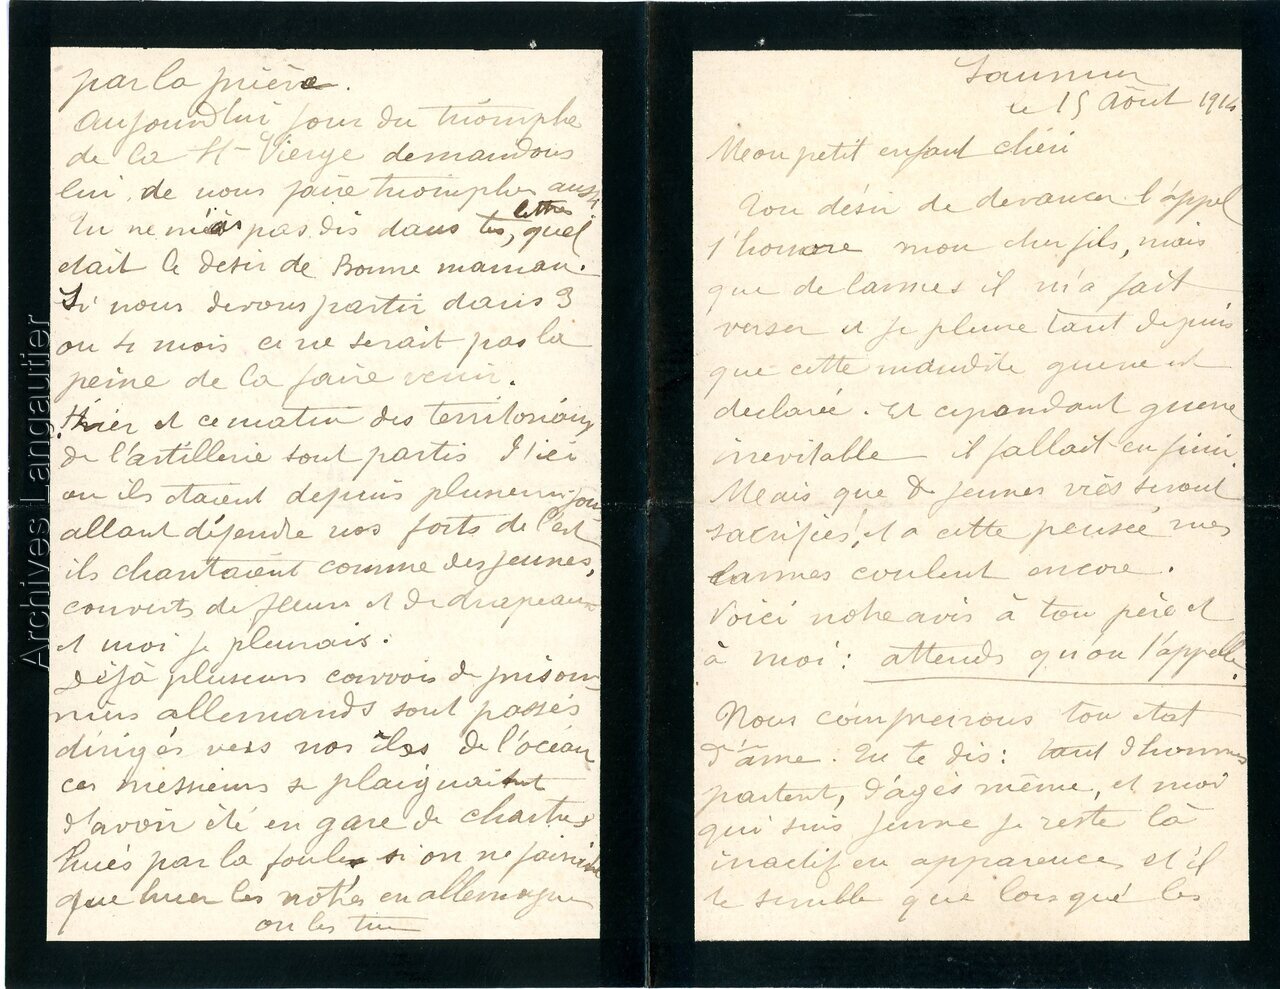 par la prière.
Aujourd'hui jour du triomphe
de la Ste Vierge demandons
lui, de nous faire triompher aussi
Tu ne m'as pas dis dans tes, quel
lettres
était le désir de Bonne maman.
Si nous devons partir dans 3
ou 4 mois ce ne serait pas la
peine de la faire venir.
Hier et ce matin des territoriaux
de l'artillerie sont partis d'ici
ou ils étaient depuis plusieurs jours
allant défendre nos forts de l'est
ils chantaient comme des jeunes,
couverts de fleurs et de drapeaux
et moi je pleurais.
Déjà plusieurs convois de prison-
niers allemands sont passés
dirigés vers nos îles de l'océan
ces messieurs se plaignaient
d'avoir été en gare de chartres
hués par la foule si on ne faisait
que huer les notrés en allemagne
on les tue
Saumur
le 15 Août 1914
Mon petit enfant chéri
Ton désir de devancer l'appel
t'honore mon cher fils, mais
que de larmes il m'a fait
verser et je pleure tant depuis
que cette maudite guerre est
déclarée. Et cependant guerre
inévitable il fallait en finir.
Mais que de jeunes vies seront
sacrifiés! et a cette pensée mes
larmes coulent encore.
Voici notre avis à ton père et
à moi: attends qu'on t'appelle.
Nous comprenons ton état
d'âme. Tu te dis: tant d'hommes
partent, d'agés même, et moi
qui suis jeune je reste là
inactif en apparence et il
te semble que lorsque les
Archives Langautier